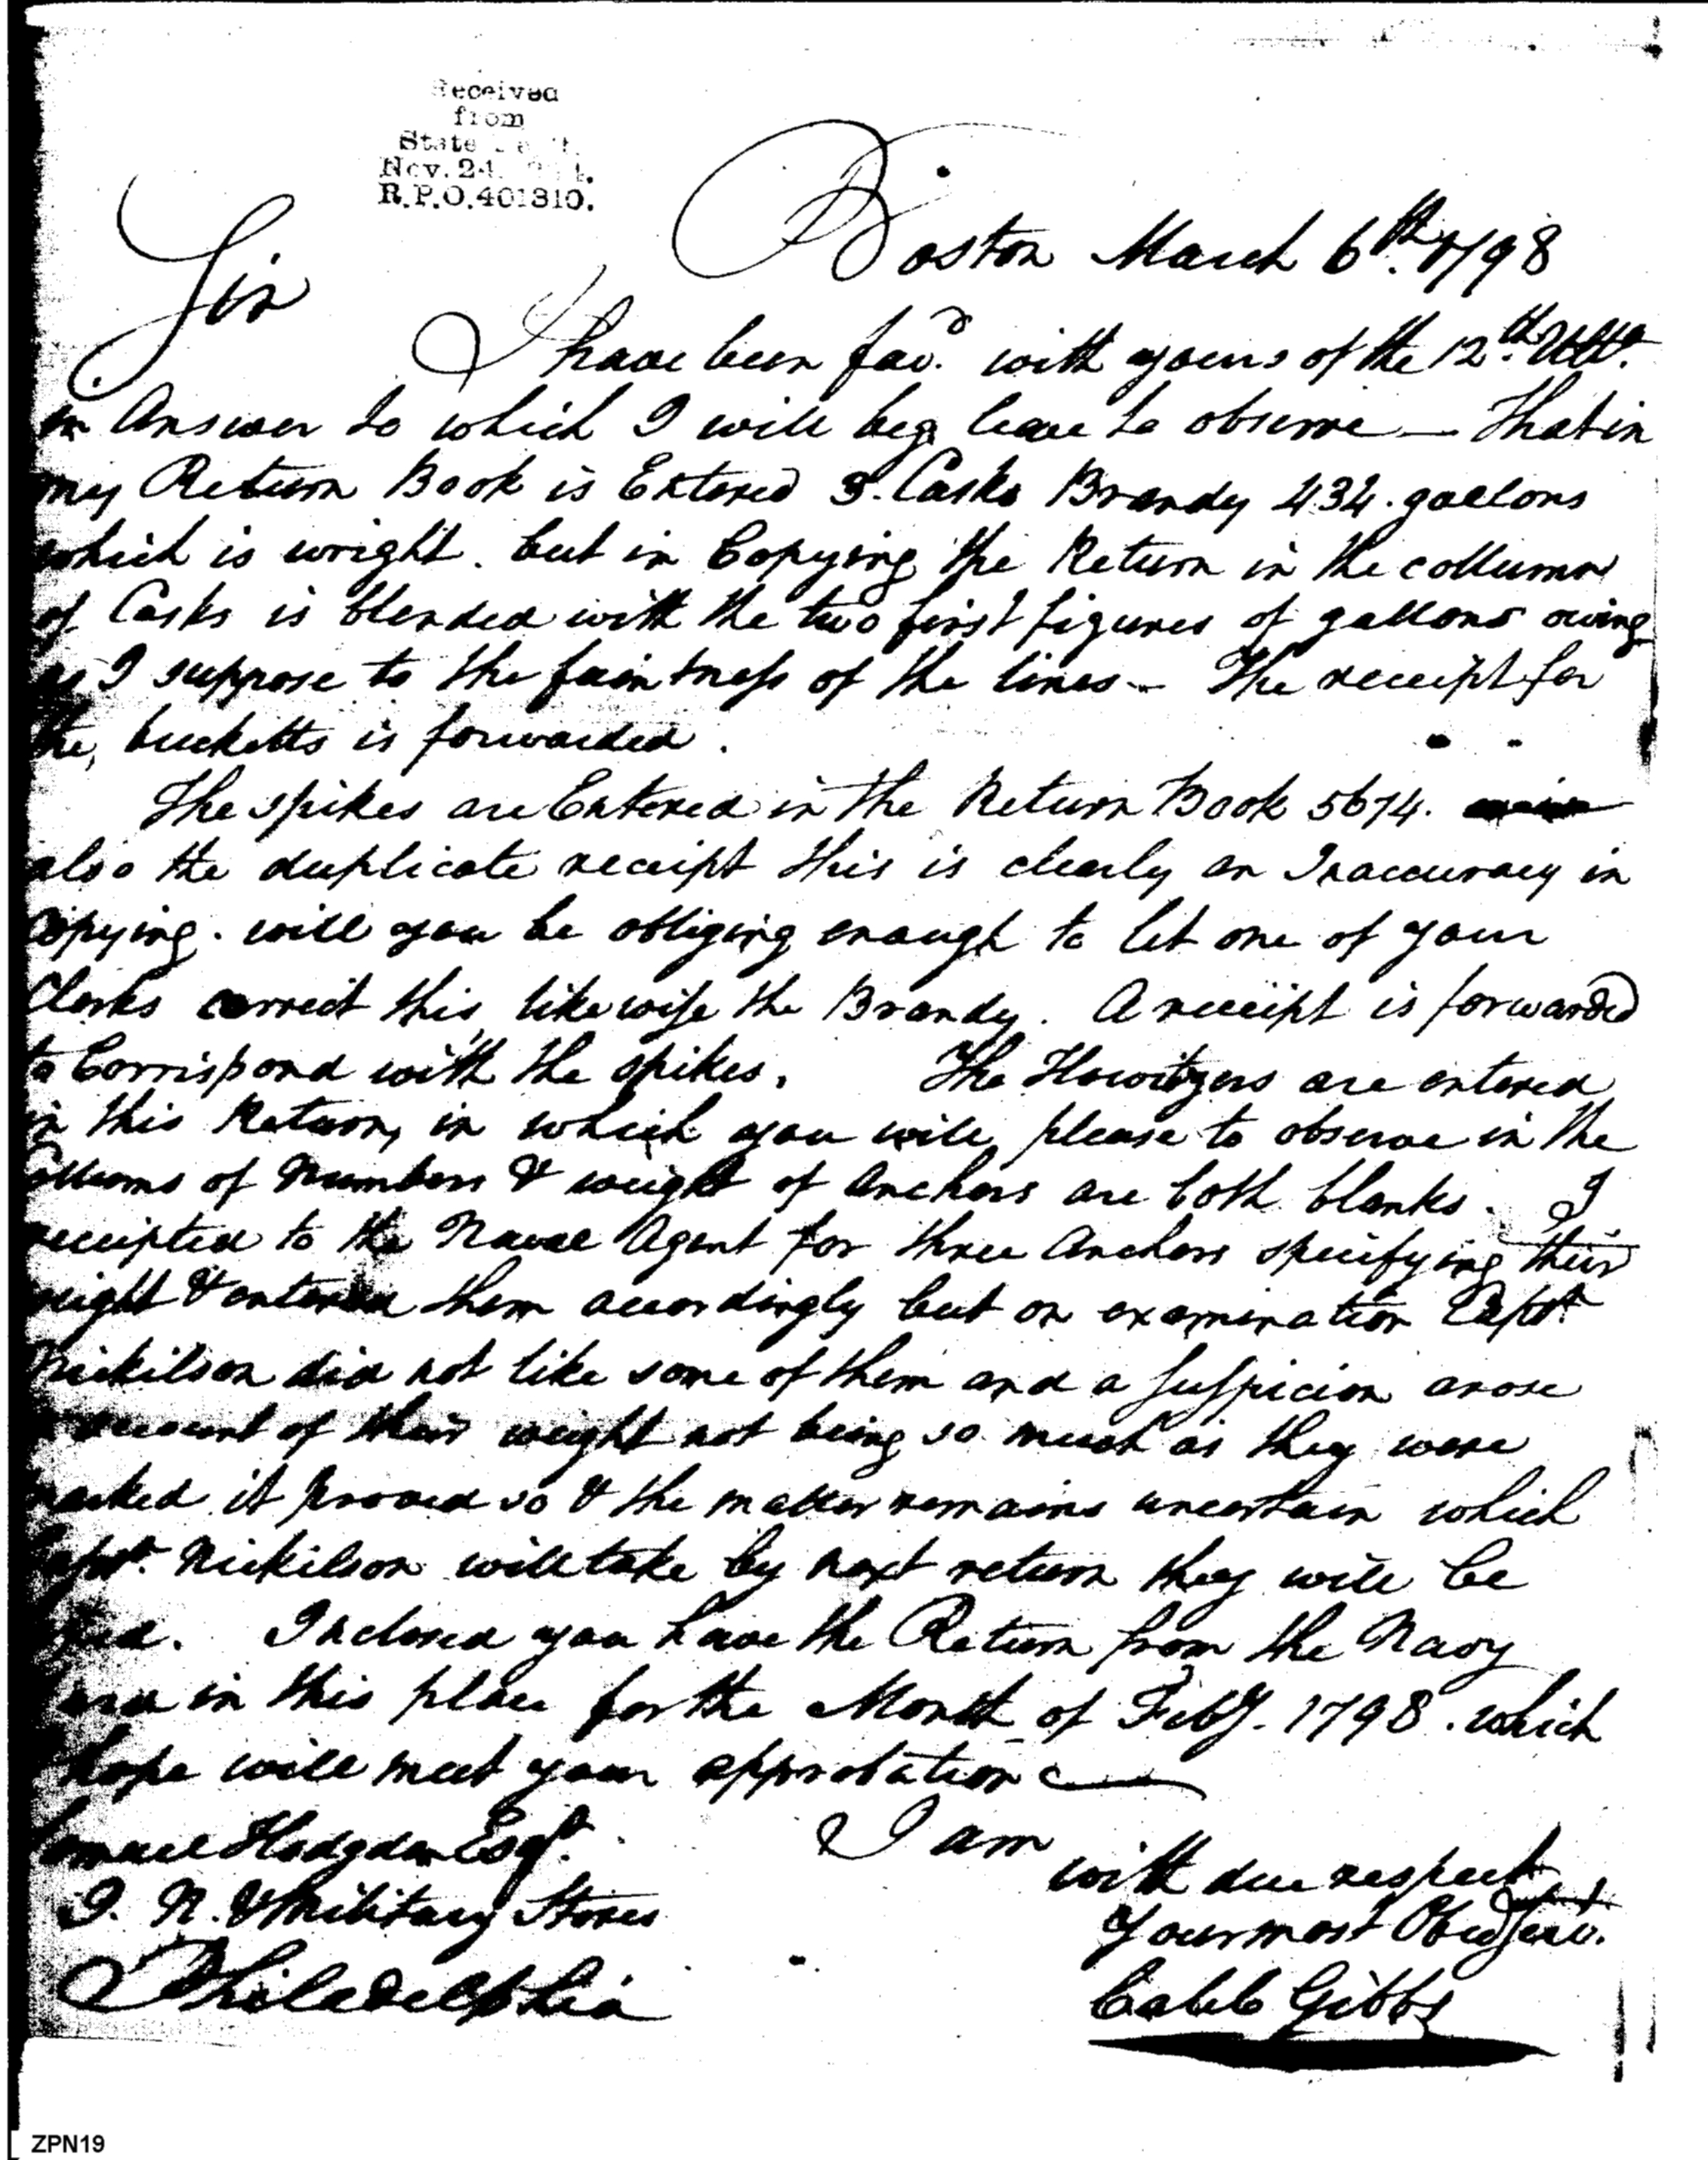 Received
from
State
Nov. 24.
R.P.O. 401310.
Boston March 6th. 1798
Sir
I have been favd. with yours of the 12th. Ulto.
in Answer to which I will beg leave to observe — That in
my Return Book is Entered 3. Casks Brandy 434. gallons
which is wright. but in Copying the Return in the collumn
of Casks is blended with the two first figures of gallons owing
as I suppose to the faintness of the lines — The receipt for
the, bucketts is forwarded.
The spikes are Entered in the Return Book 5674.
also the duplicate receipt this is clearly an Inaccuracy in
Copying. will you be obliging enough to let one of your
Clerks correct this, likewise the Brandy. A receipt is forwarded
to Corrispond with the spikes. The Howitzers are entered
in this Return, in which you will, please to observe in the
Collums of Numbers & weight of Anchors are both blanks. I
receipted to the Naval Agent for three Anchors specifying their
weight & entered them accordingly but on examination Capt.
Nickilson did not like some of them and a suspicion arose
account of their weight not being so much as they were
marked it proved so & the matter remains uncertain which
Capt. Nickilson will take by next return they will be
Inclosed you have the Return from the Navy
Yard in this place for the Month of Feby. 1798. which
hope will meet your approbation —
I am
with due respect
Your most Obedt Servt.
Caleb Gibbs
Samuel Hodgdon Esqr.
I. N. & Military Stores
Philadelphia
ZPN19